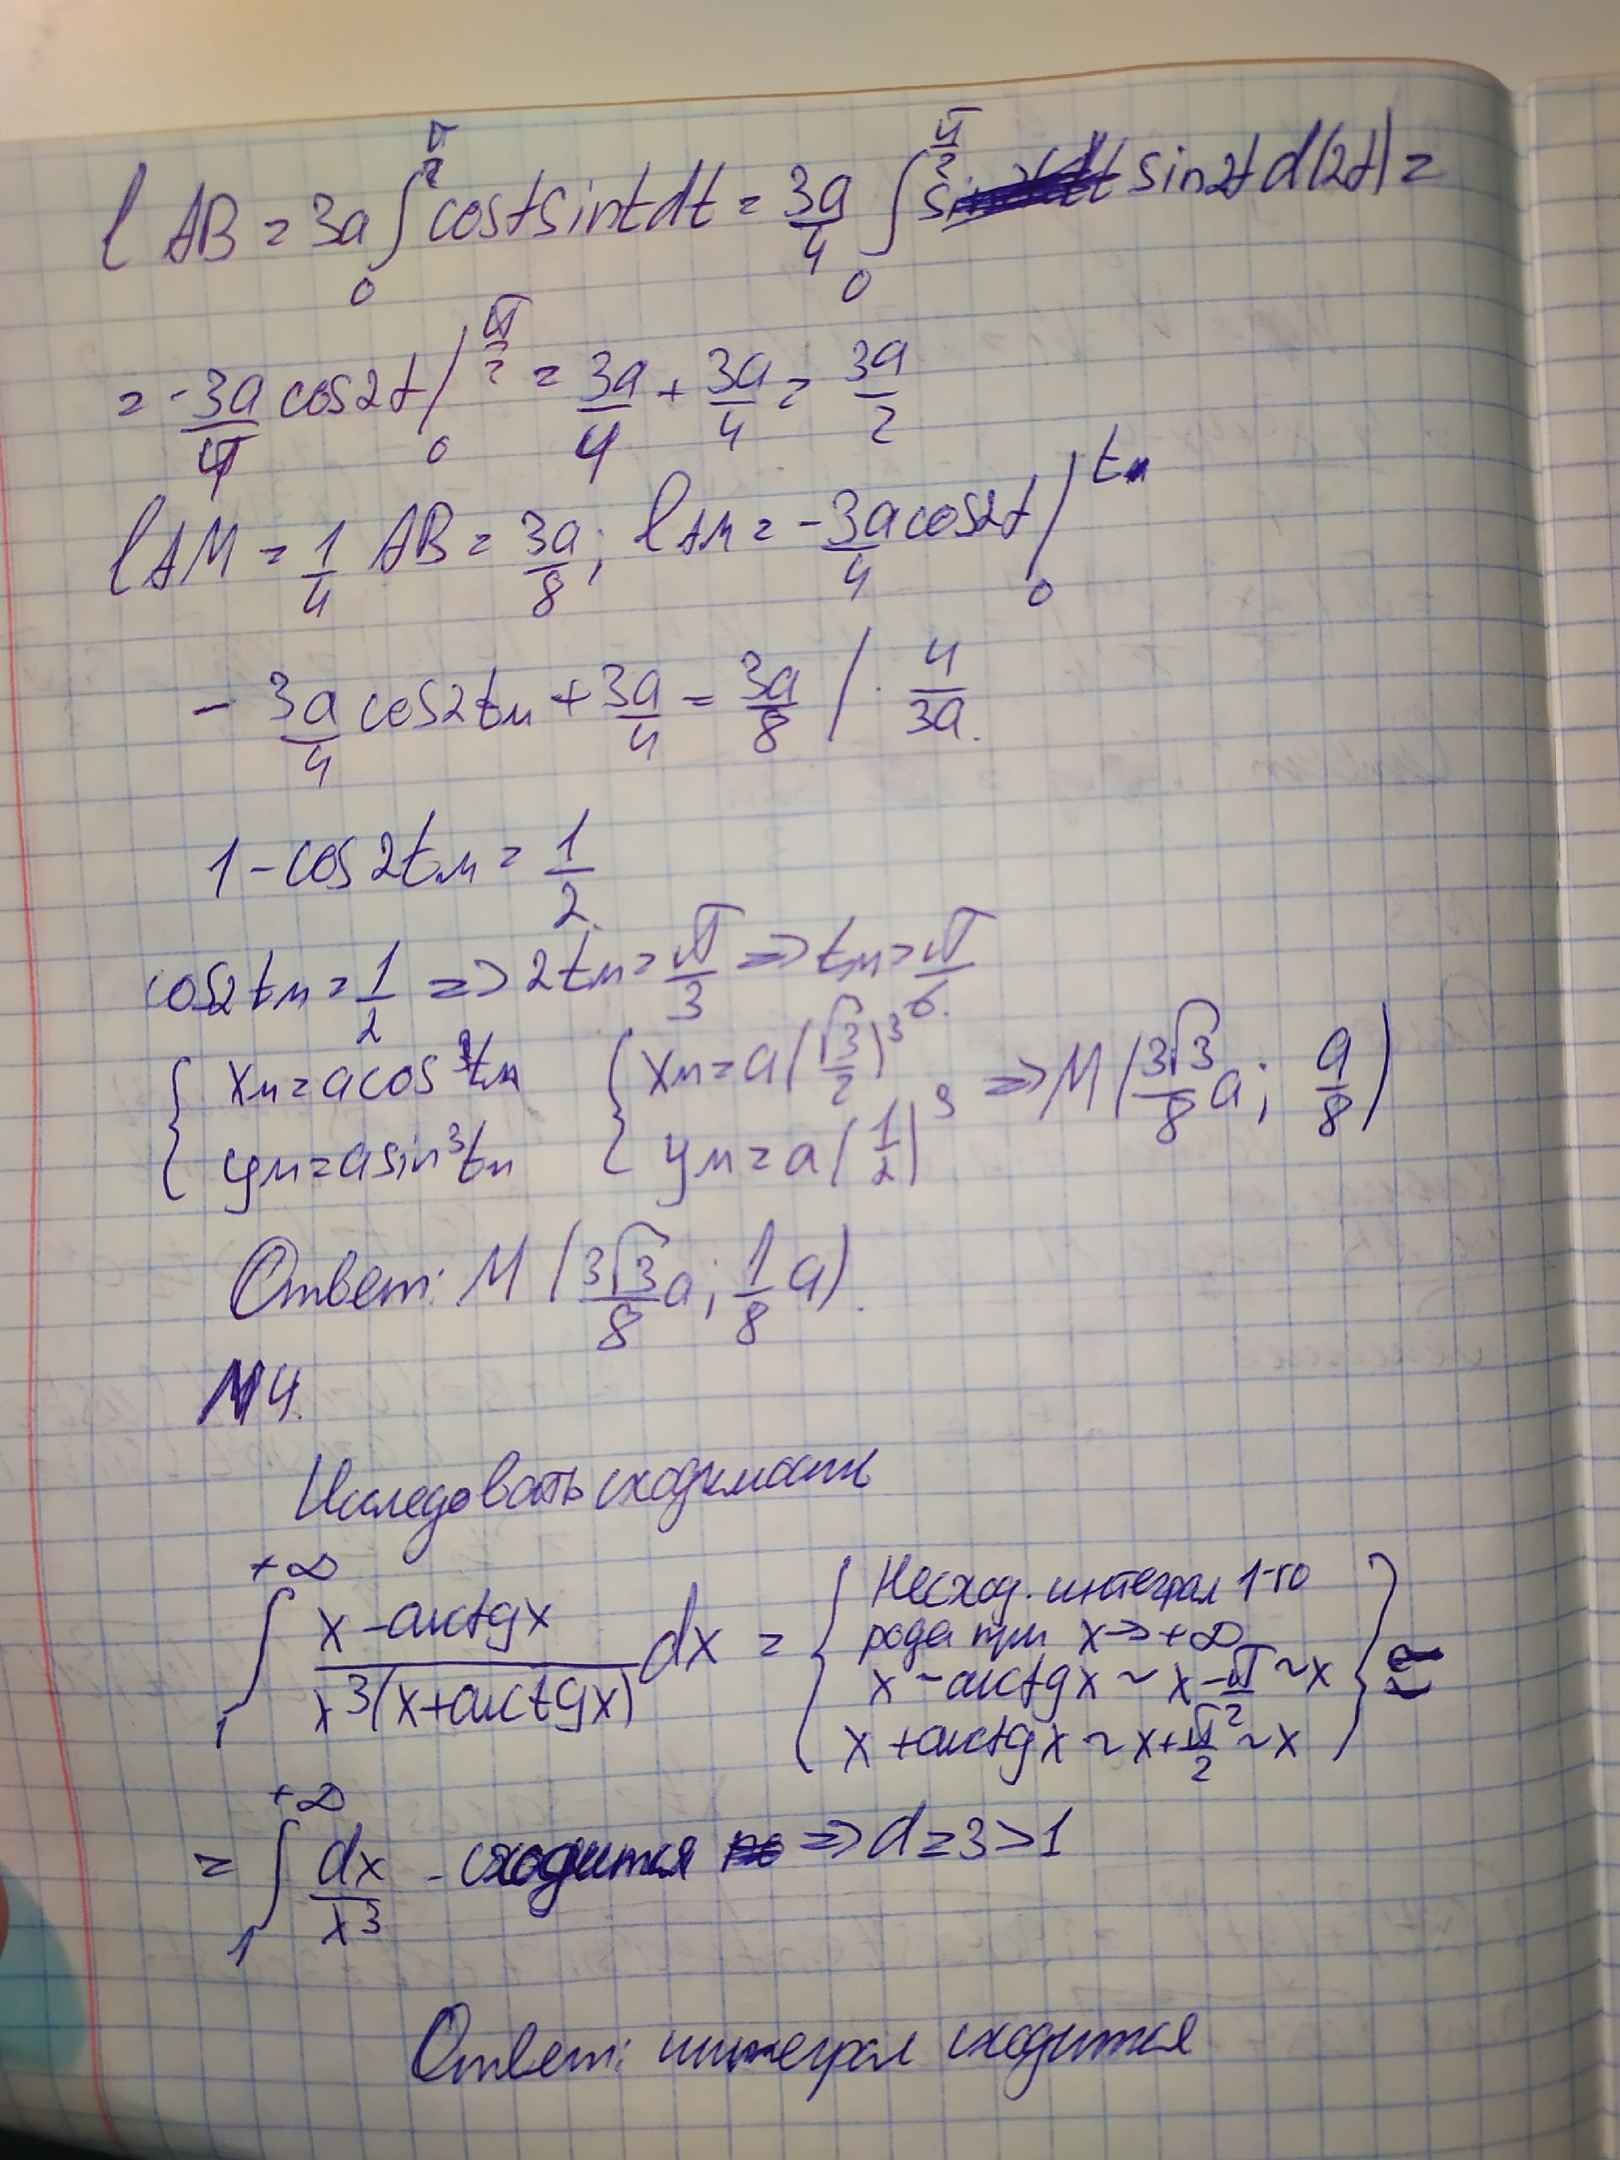 l AB = 3a ∫₀^(π/2) cost sint dt = 3a/4 ∫₀^(π/2) sin2t d(2t) =
= -3a/4 cos2t |₀^(π/2) = 3a/4 + 3a/4 = 3a/2
l AM = 1/4 AB = 3a/8; l AM = -3a/4 cos2t |₀^(tм)
- 3a/4 cos2tм + 3a/4 = 3a/8 | · 4/3a.
1 - cos2tм = 1/2.
cos2tм = 1/2 => 2tм = π/3 => tм = π/6.
{ xм = a cos³tм { xм = a(√3/2)³ => M(3√3/8 a; a/8)
{ yм = a sin³tм { yм = a(1/2)³
Ответ: M (3√3/8 a; 1/8 a).
№4.
Исследовать сходимость
∫₁^(+∞) (x - arctgx)/(x³(x + arctgx)) dx = { Несход. интеграл 1-го
рода при x→+∞
x - arctgx ~ x - π/2 ~ x
x + arctgx ~ x + π/2 ~ x }
= ∫₁^(+∞) dx/x³ - сходится => d = 3 > 1
Ответ: интеграл сходится